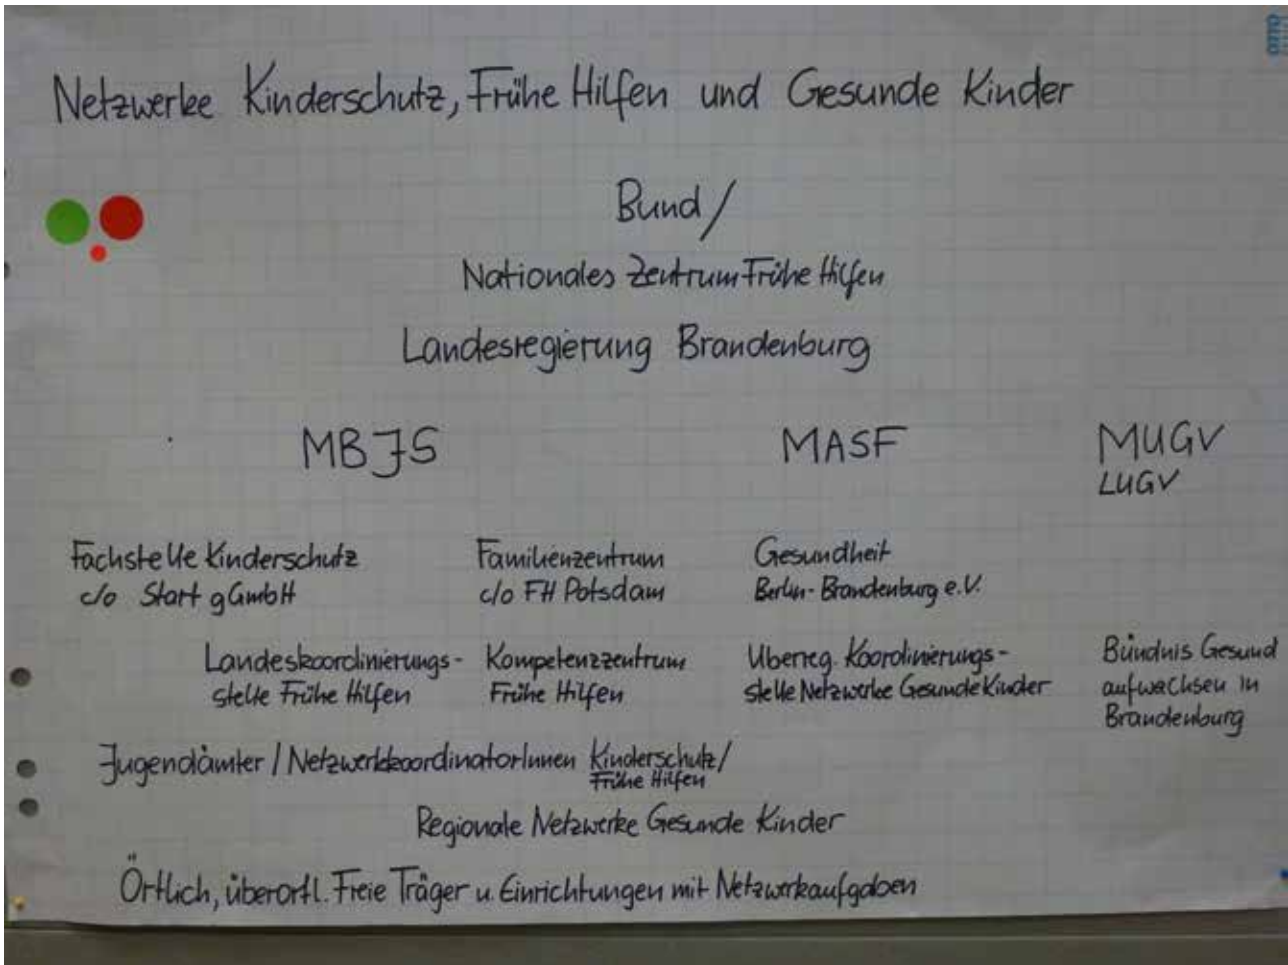 Netzwerke Kinderschutz, Frühe Hilfen und Gesunde Kinder
Bund /
Nationales Zentrum Frühe Hilfen
Landesregierung Brandenburg
MBJS
MASF
MUGV
LUGV
Fachstelle Kinderschutz
c/o Start gGmbH
Familienzentrum
c/o FH Potsdam
Gesundheit
Berlin-Brandenburg e.V.
Landeskoordinierungs-
stelle Frühe Hilfen
Kompetenzzentrum
Frühe Hilfen
Überreg. Koordinierungs-
stelle Netzwerke Gesunde Kinder
Bündnis Gesund
aufwachsen in
Brandenburg
Jugendämter / NetzwerkkoordinatorInnen Kinderschutz/
Frühe Hilfen
Regionale Netzwerke Gesunde Kinder
Örtlich, überörtl. Freie Träger u. Einrichtungen mit Netzwerkaufgaben